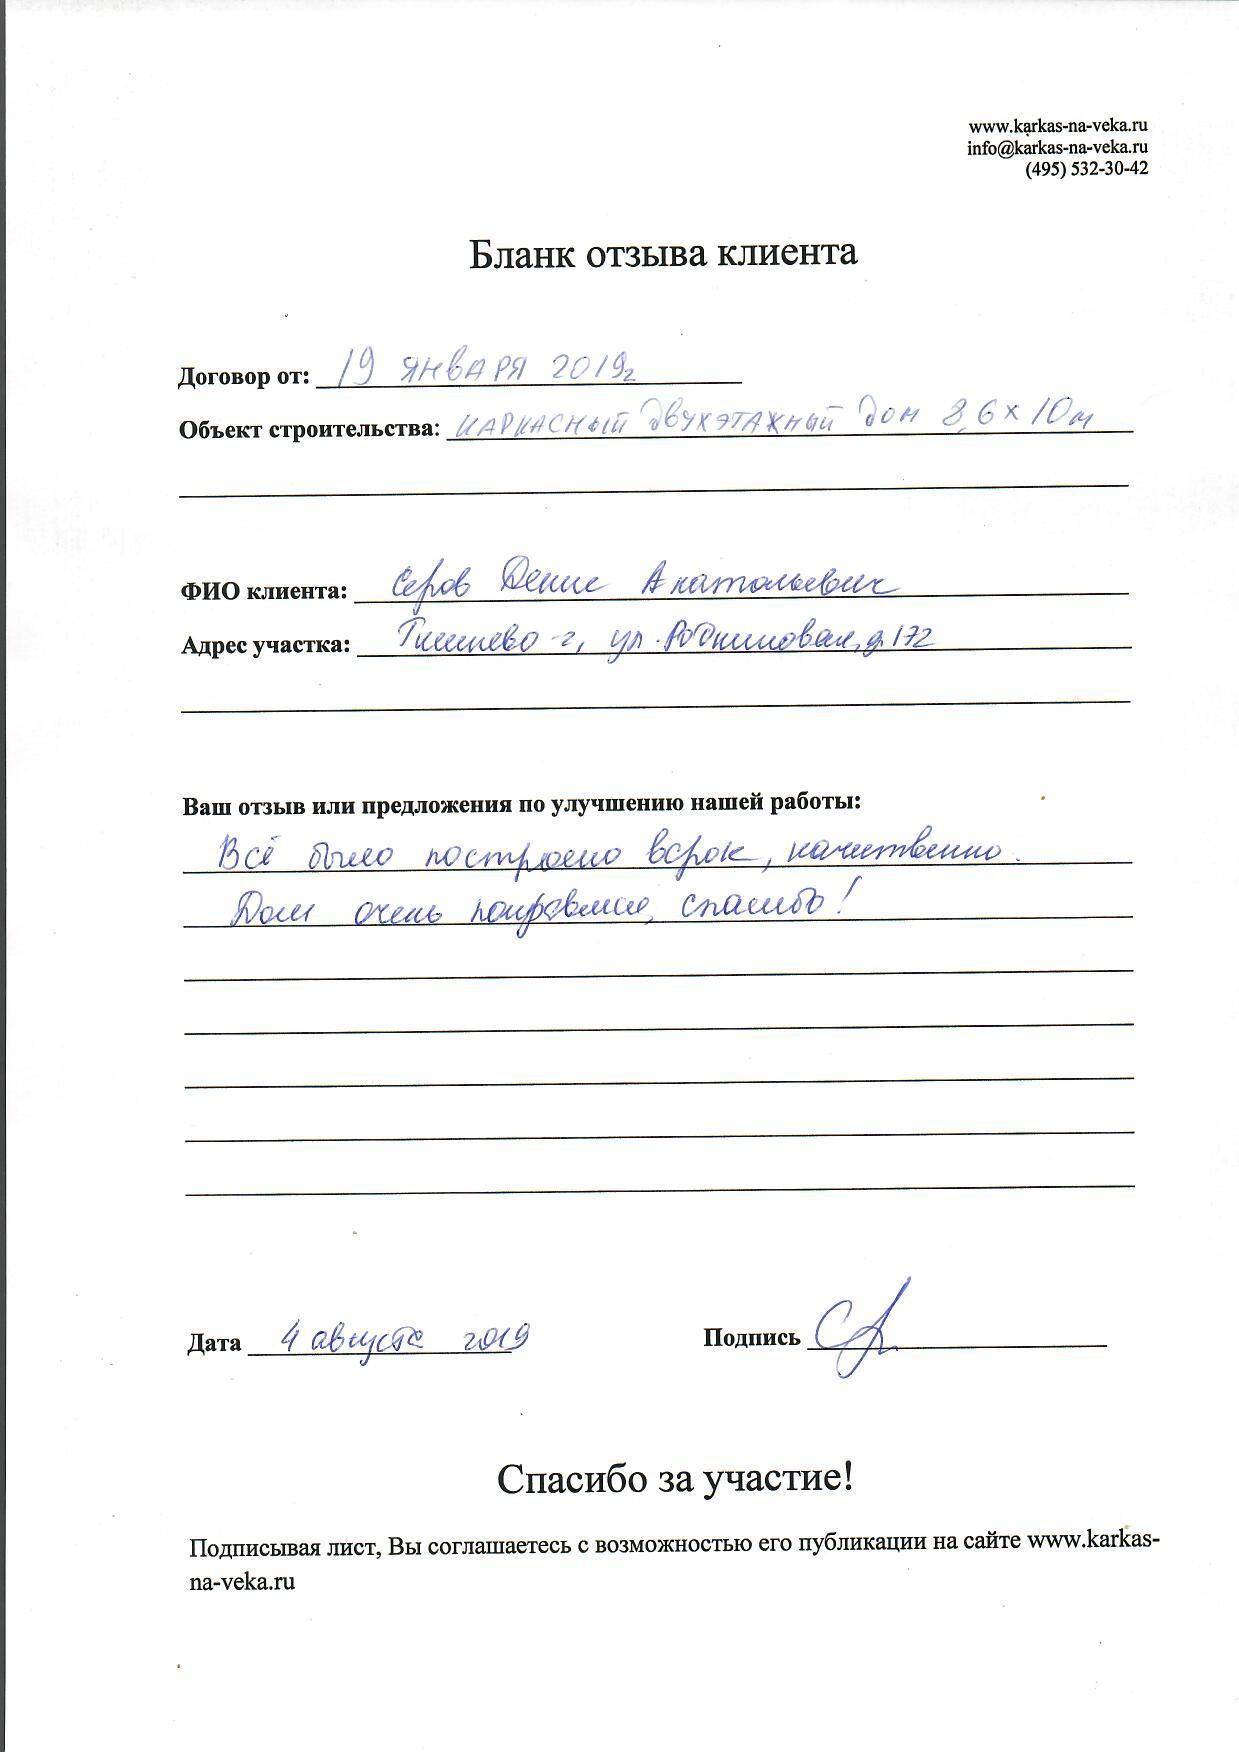 www.karkas-na-veka.ru
info@karkas-na-veka.ru
(495) 532-30-42
Бланк отзыва клиента
Договор от: 19 января 2019г
Объект строительства: каркасный двухэтажный дом 8,6 х 10 м
ФИО клиента: Серов Денис Анатольевич
Адрес участка: Тишнево-2, ул. Родниковая, д. 172
Ваш отзыв или предложения по улучшению нашей работы:
Всё было построено всрок, качественно.
Дом очень понравился, спасибо!
Дата 4 августа 2019 Подпись
Спасибо за участие!
Подписывая лист, Вы соглашаетесь с возможностью его публикации на сайте www.karkas-
na-veka.ru